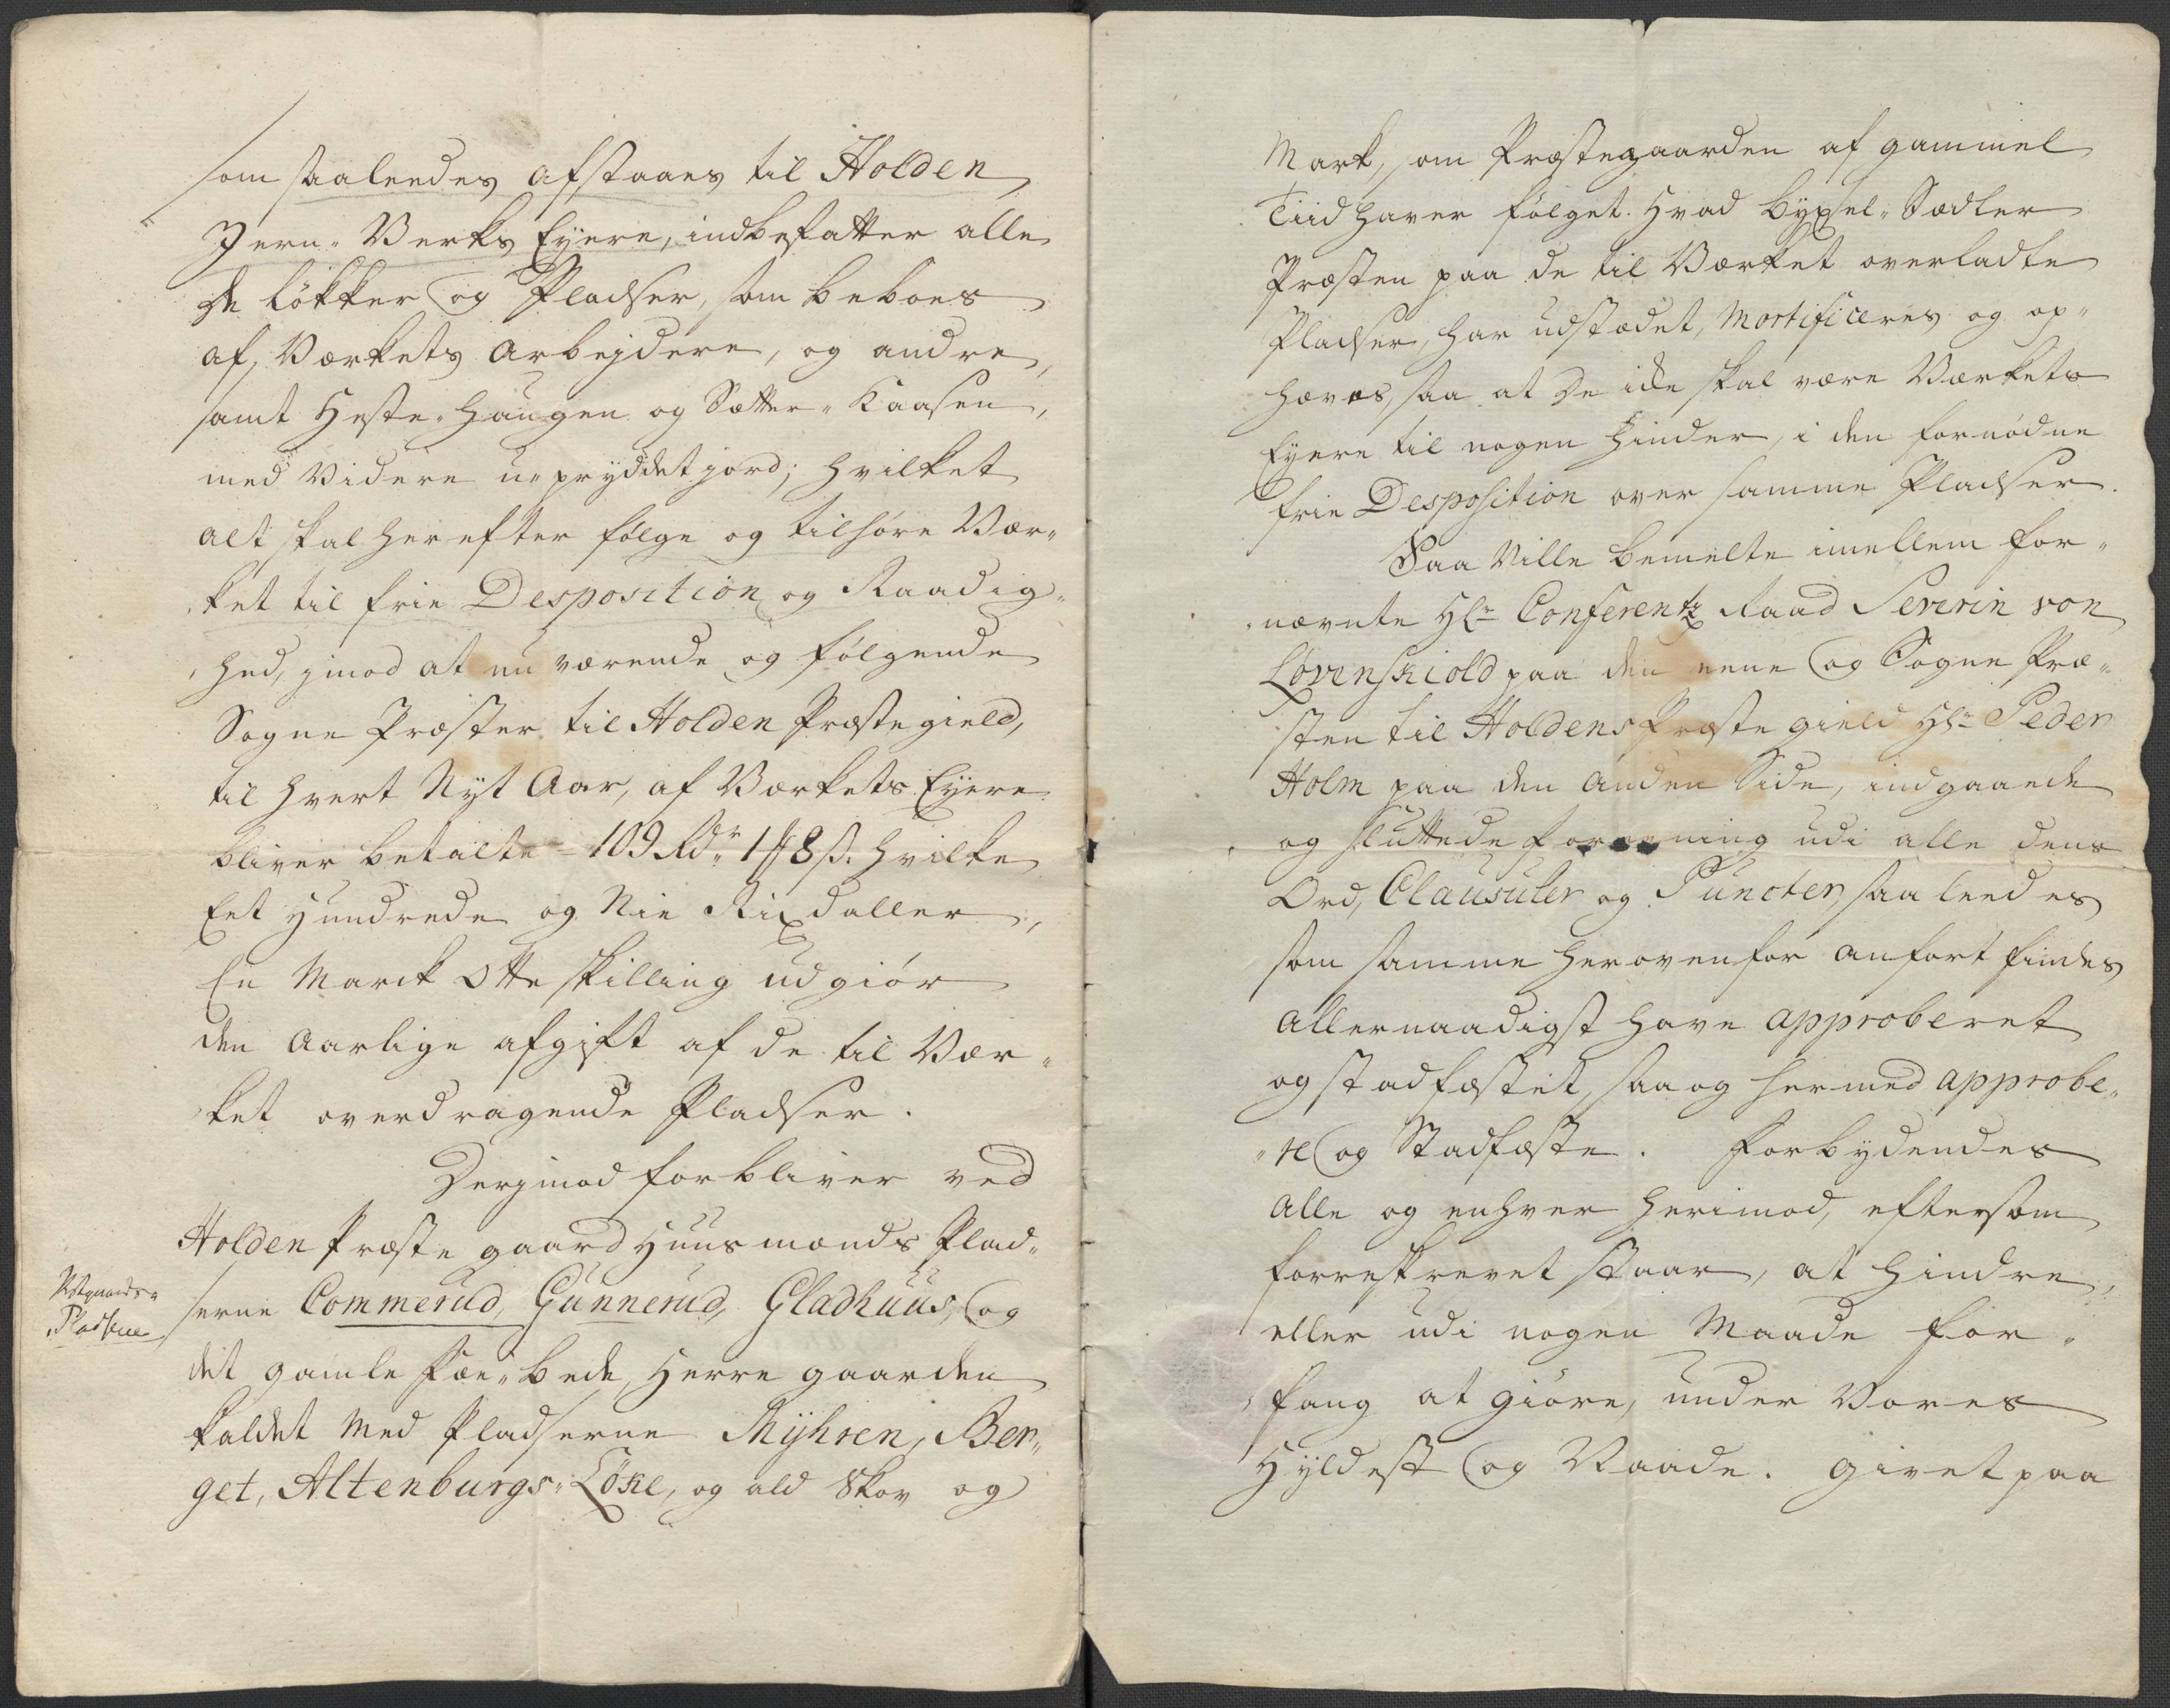 som saaleedes afstaaes til Holden
Jern-Verks Eyere, indbefatter alle
de Løkker og Pladser, som beboes
af Værkets Arbejdere, og andre,
samt Heste-Haugen og Sætter-Kaasen,
med Videre u-pryddet jord; hvilket
alt skal herefter følge og tilhøre Vær-
ket til frie Desposition og Raadig-
hed, jmod at nu værende og følgende
Sogne Præster til Holden Præstegield,
til hvert Nyt Aar, af Værkets Eyere
bliver betalte 109 Rdr 1 # 8 ß. hvilke
Eet Hundrede og Nie Rixdaller,
En Marck Otte skilling udgiør
den Aarlige afgift af de til Vær-
ket overdragende Pladser.
Derjmod forbliver ved
Holden Præste gaard Huusmands Plad-
serne Commerud, Gunnerud, Gladhuus, og
Pladsene
det gamle Fæe-bede, Herre gaarden
kaldet med Pladserne Myhren, Ber-
get, Altenburgs-Löke, og ald Skov og
Mark, som Præstegaarden af gammel
Tiid haver følget. Hvad Byxel-Sædler
Præsten paa de til Værket overladte
Pladser, har udstædet, mortificeres og op-
hæves, saa at de icke skal være Værkets
Eyere til nogen Hinder, i den fornødne
frie Desposition over samme Pladser.
Saa Ville bemelte imellem for-
nævnte Hr. Conferentz Raad Severin von
Løvenskiold paa den eene og Sogne Præ-
sten til Holdens Præste gield Hr. Peder
Holm paa den anden Side, indgaaede
og sluttede Foreening udi alle dens
Ord, Clausuler og Puncter, saaleedes
som samme herovenfor anført findes
allernaadigst have approberet
og stadfæstet, saa og hermed approbe-
re og Stadfæste. Forbydendes
alle og enhver herimod, eftersom
forreskrevet staar, at hindre,
eller udi nogen Maade For-
fang at giøre, under Vores
Hyldest og Naade. Givet paa